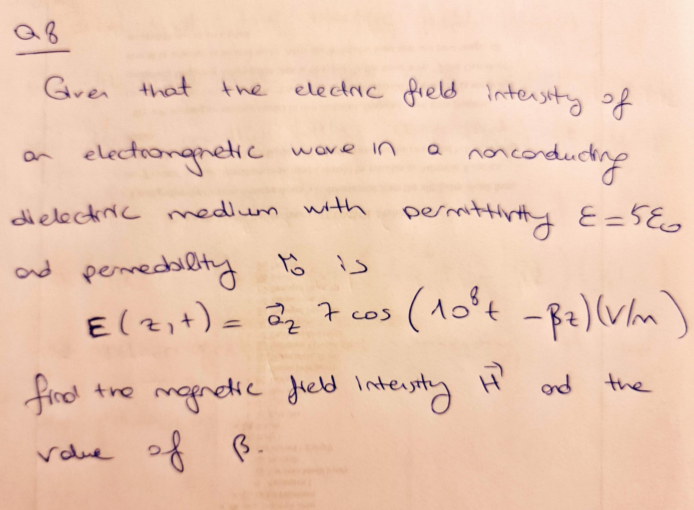 Q8
Given that the electric field intensity of
an electromagnetic wave in a nonconducting
dielectric medium with permittivity ε = 5ε₀
and permeability μ₀ is
E(z,t) = a⃗z 7 cos (10⁸t - βz)(V/m)
find the magnetic field intensity H⃗ and the
value of β.